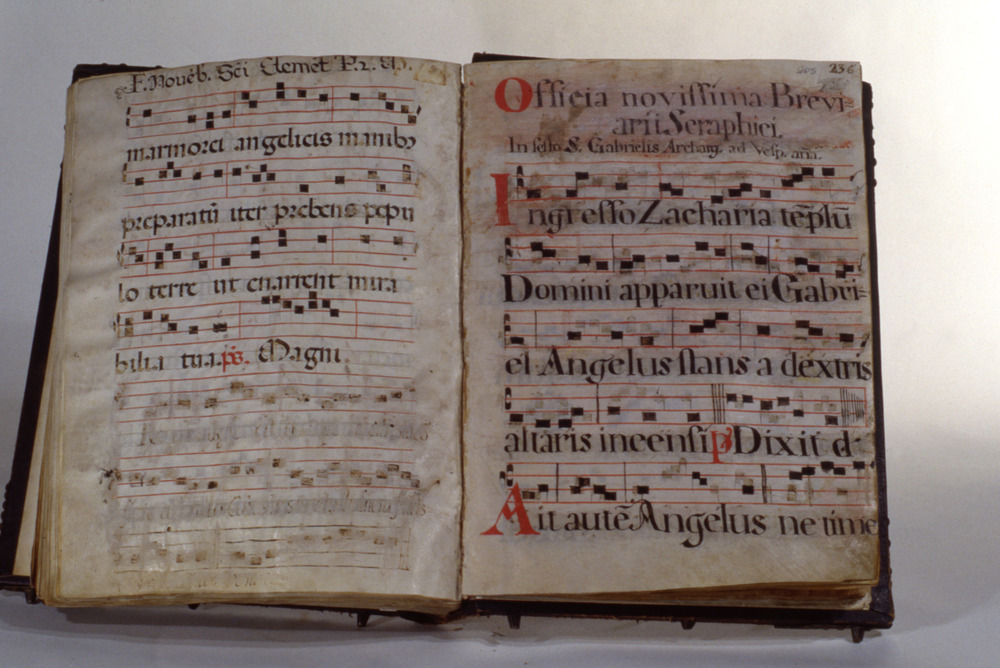 F. Novēb. Sc̄i Clemēt P. 2. 
marmorei angelicis manibꝰ
preparatū iter prebens popu
lo terre ut enarrent mira
bilia tua. ps. Magni.
236
Officia novissima Brevi-
arii Seraphici.
In festo S. Gabrielis Archang. ad Vesp. ana.
Ingresso Zacharia tēplū
Domini apparuit ei Gabri=
el Angelus stans a dextris
altaris incensi p Dixit d
Ait autē Angelus ne time